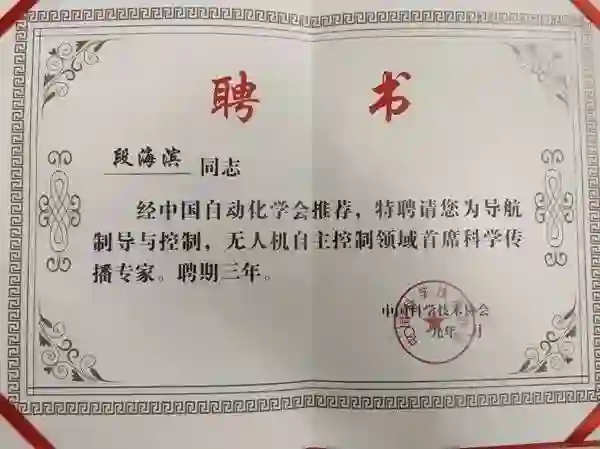 聘 书
段海滨 同志
经中国自动化学会推荐，特聘请您为导航
制导与控制，无人机自主控制领域首席科学传
播专家。聘期三年。
中国科学技术协会
九年 月